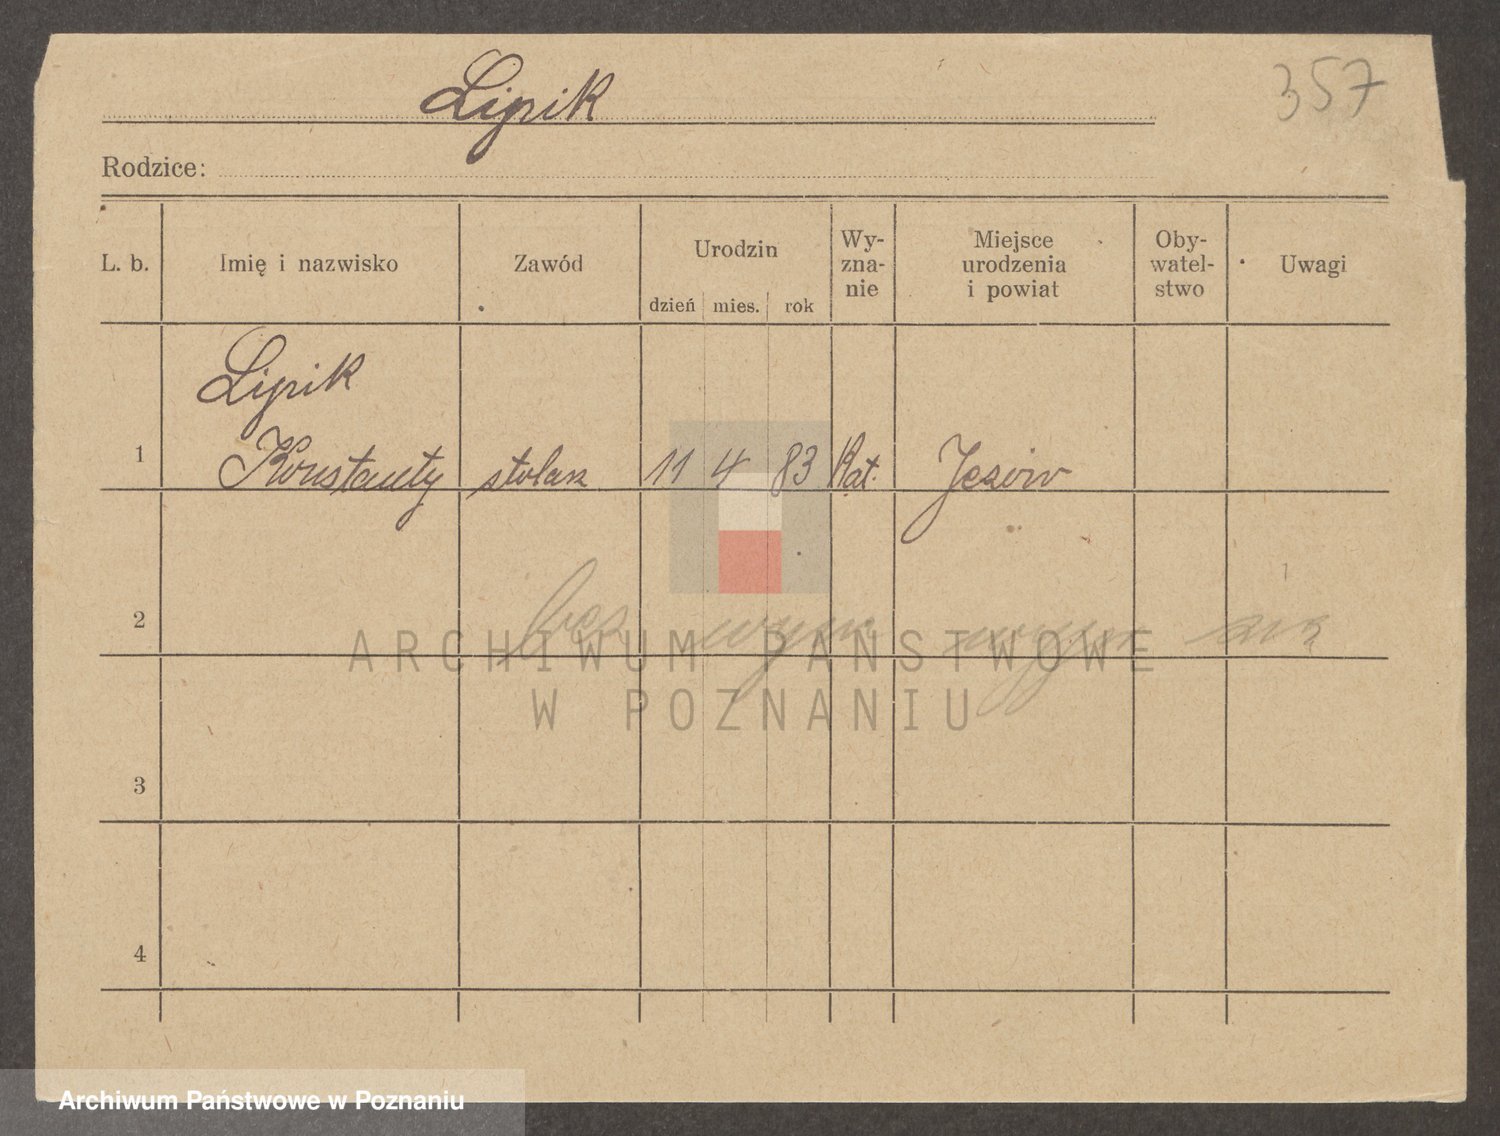 Lipik
357
Rodzice:
L. b. Imię i nazwisko Zawód Urodzin dzień mies. rok Wy- zna- nie Miejsce urodzenia i powiat Oby- watel- stwo Uwagi
Lipik
1 Konstanty stolarz 11 4 83 Kat. Jeżów
2 bez
3
4
ARCHIWUM PAŃSTWOWE
W POZNANIU
Archiwum Państwowe w Poznaniu